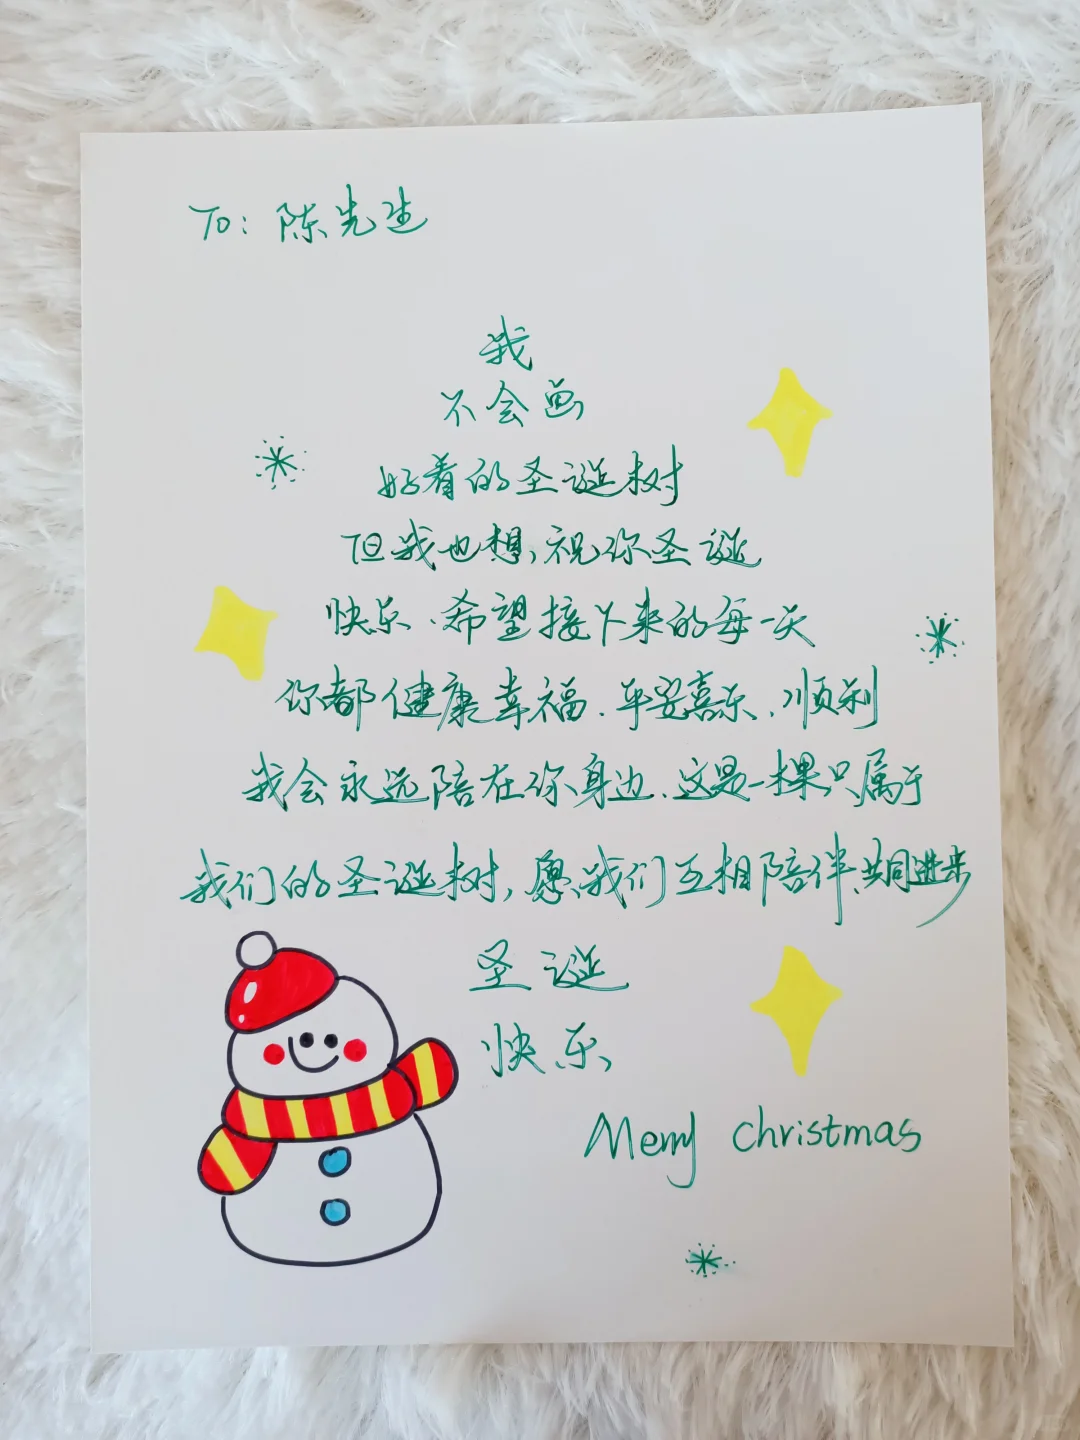 To: 陈先生
我
不会画
好看的圣诞树
但我也想,祝你圣诞
快乐.希望接下来的每一天
你都健康幸福.平安喜乐.顺利
我会永远陪在你身边.这是一棵只属于
我们的圣诞树,愿我们互相陪伴.共同进步
圣诞
快乐
Merry christmas